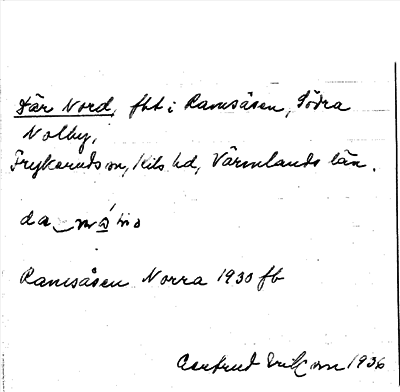 Där Nord, fbt i Ramsåsen, Södra
Nolby,
Frykeruds sn, Kils hd, Värmlands län.
da
Ramsåsen Norra 1930 fb
Gertrud Ericsson 1936